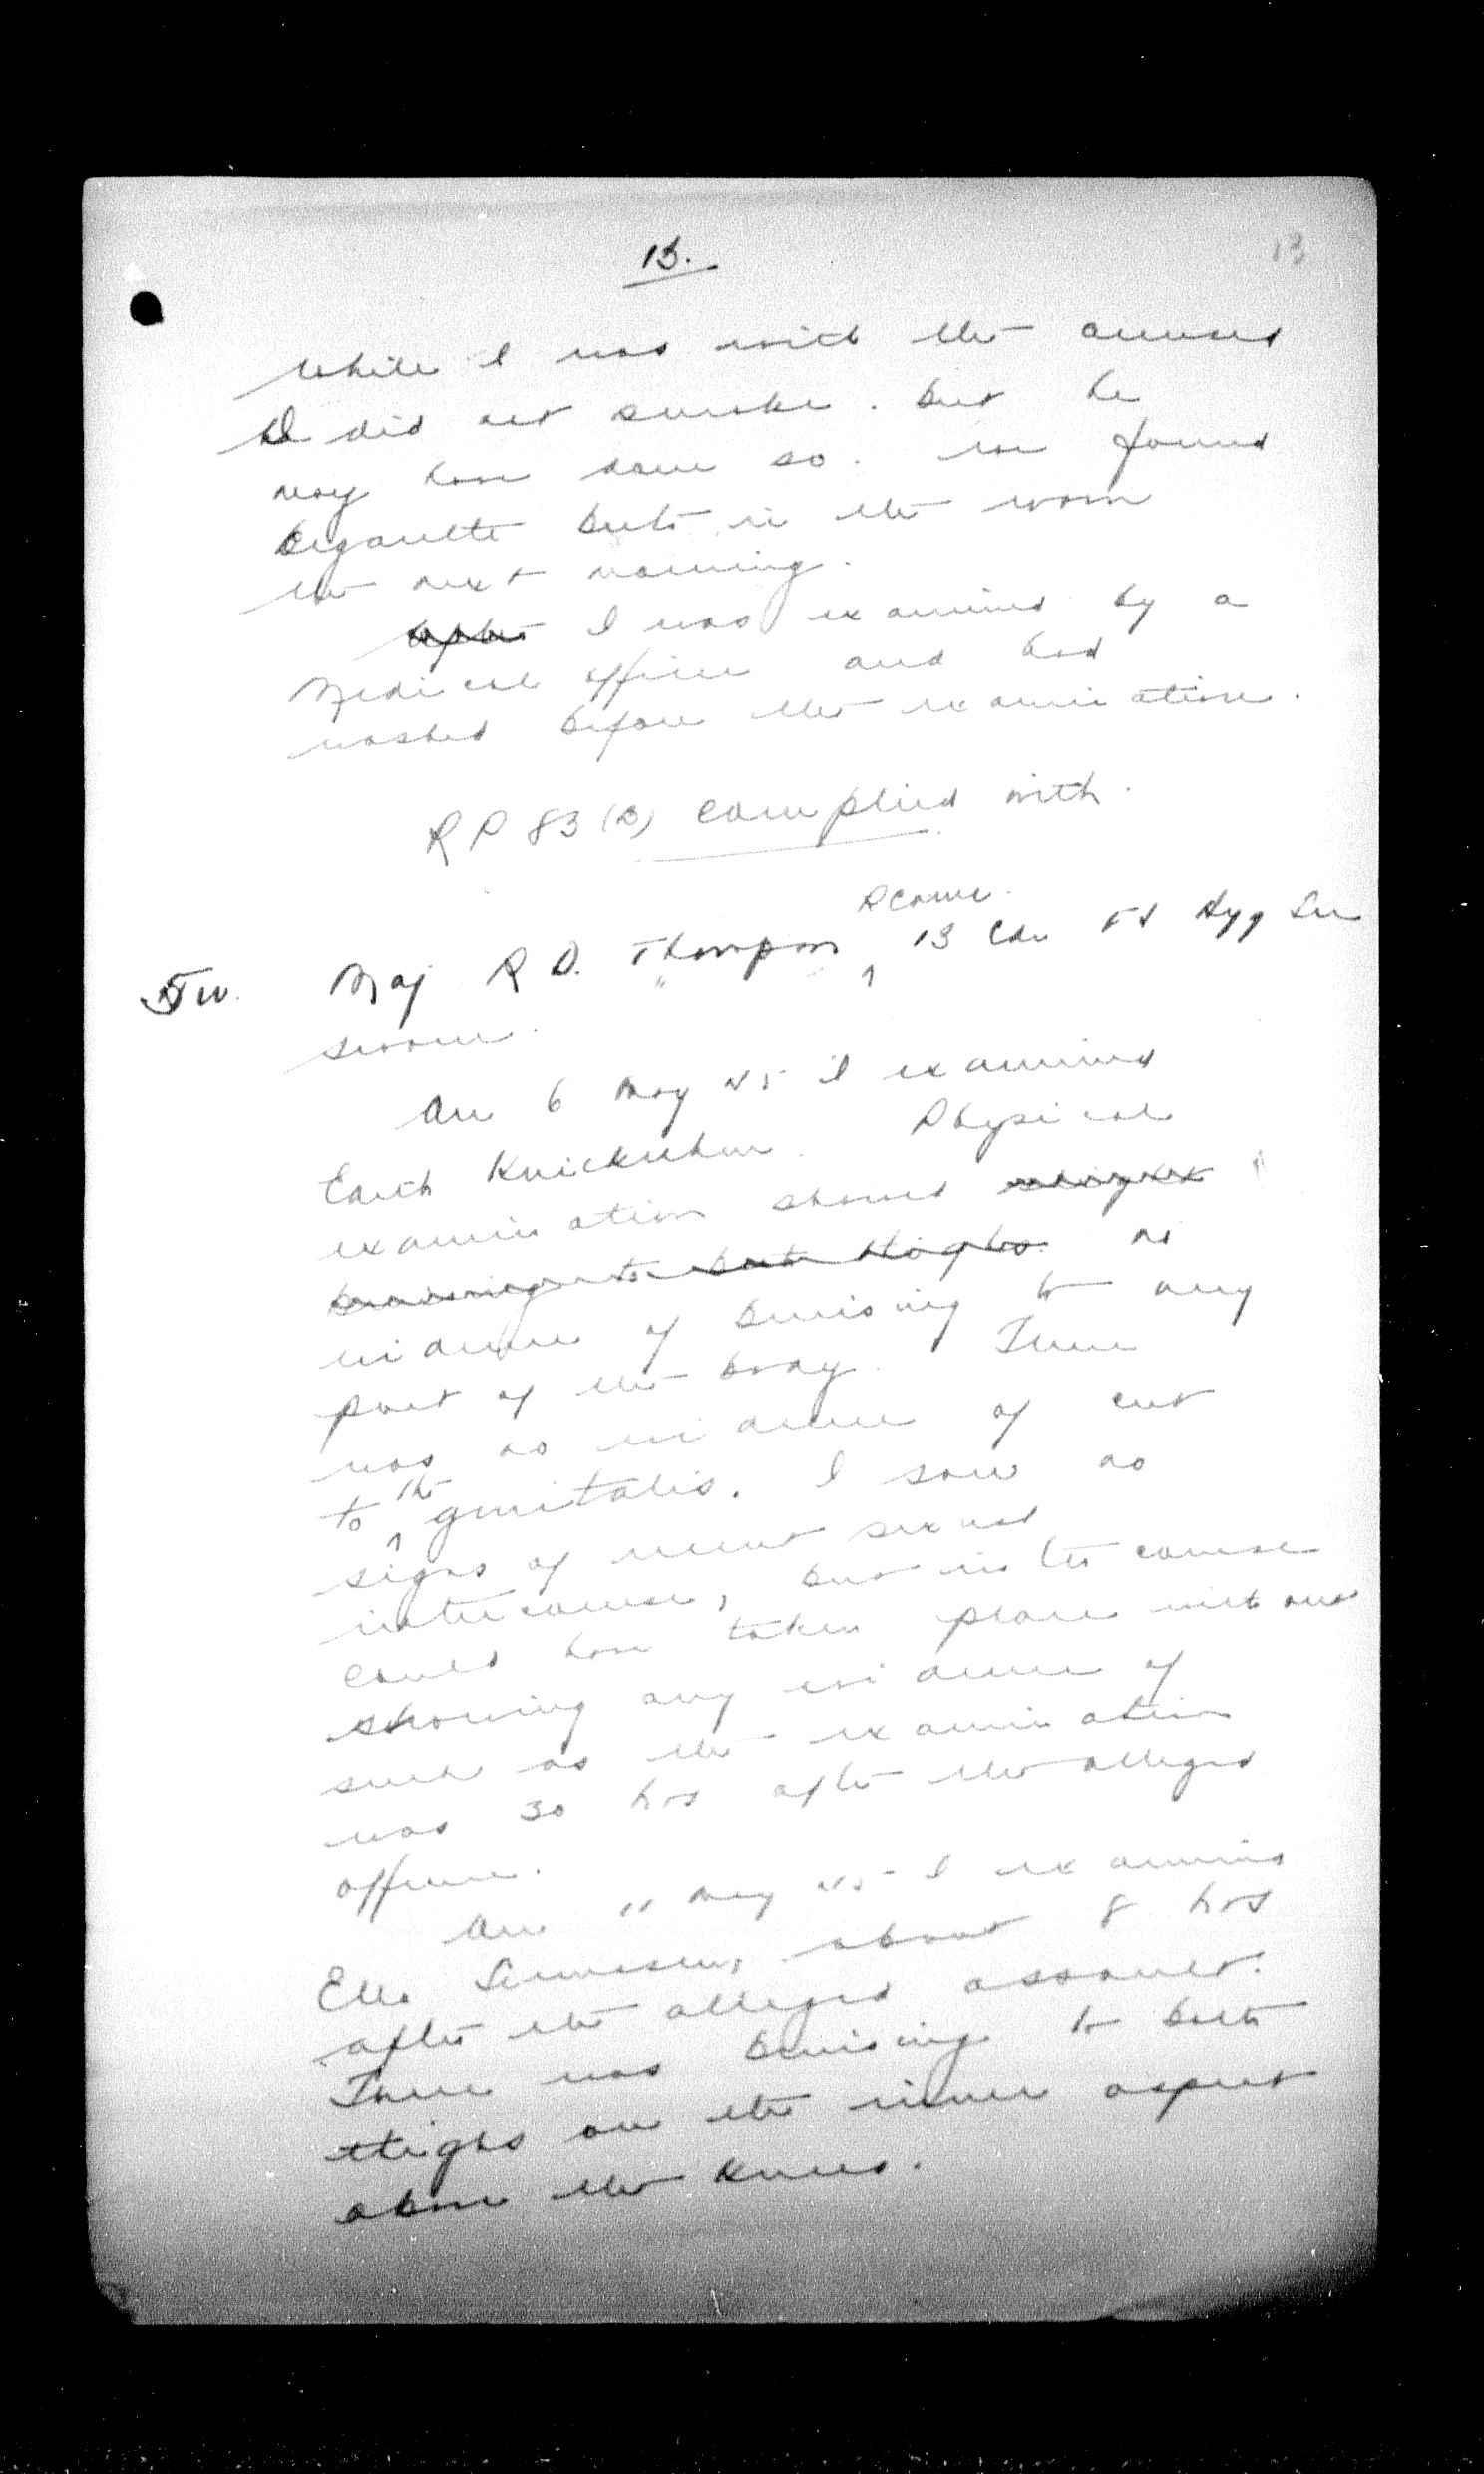 13.
13
While I was with the accused
I did not smoke. But he
may have done so. We found
cigarette buts in the room
the next morning.
I was examined by a
Medical officer and had
washed before the examination.
R P 83 (B) complied with.
RCAMC
5 W. Maj R D. Thompson 13 Cdn Fd Hyg Sec
sworn.
On 6 May 45 I examined
Edith Physical
examination showed
bruising to both thighs no
evidence of bruising to any
part of the body. There
was no evidence of cut
to the genitalis. I saw no
signs of recent sexual
intercourse, but intercourse
could have taken place without
showing any evidence of
such as the examination
was 30 hrs after the alleged
offence.
On 11 May 45 I examined
Ella about 8 hrs
after the alleged assault.
There was bruising to both
thighs on the inner aspect
above the knees.